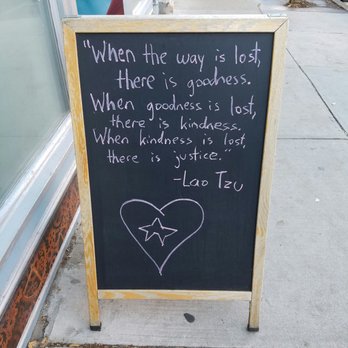 "When the way is lost,
there is goodness.
When goodness is lost,
there is kindness.
When kindness is lost,
there is justice."
-Lao Tzu